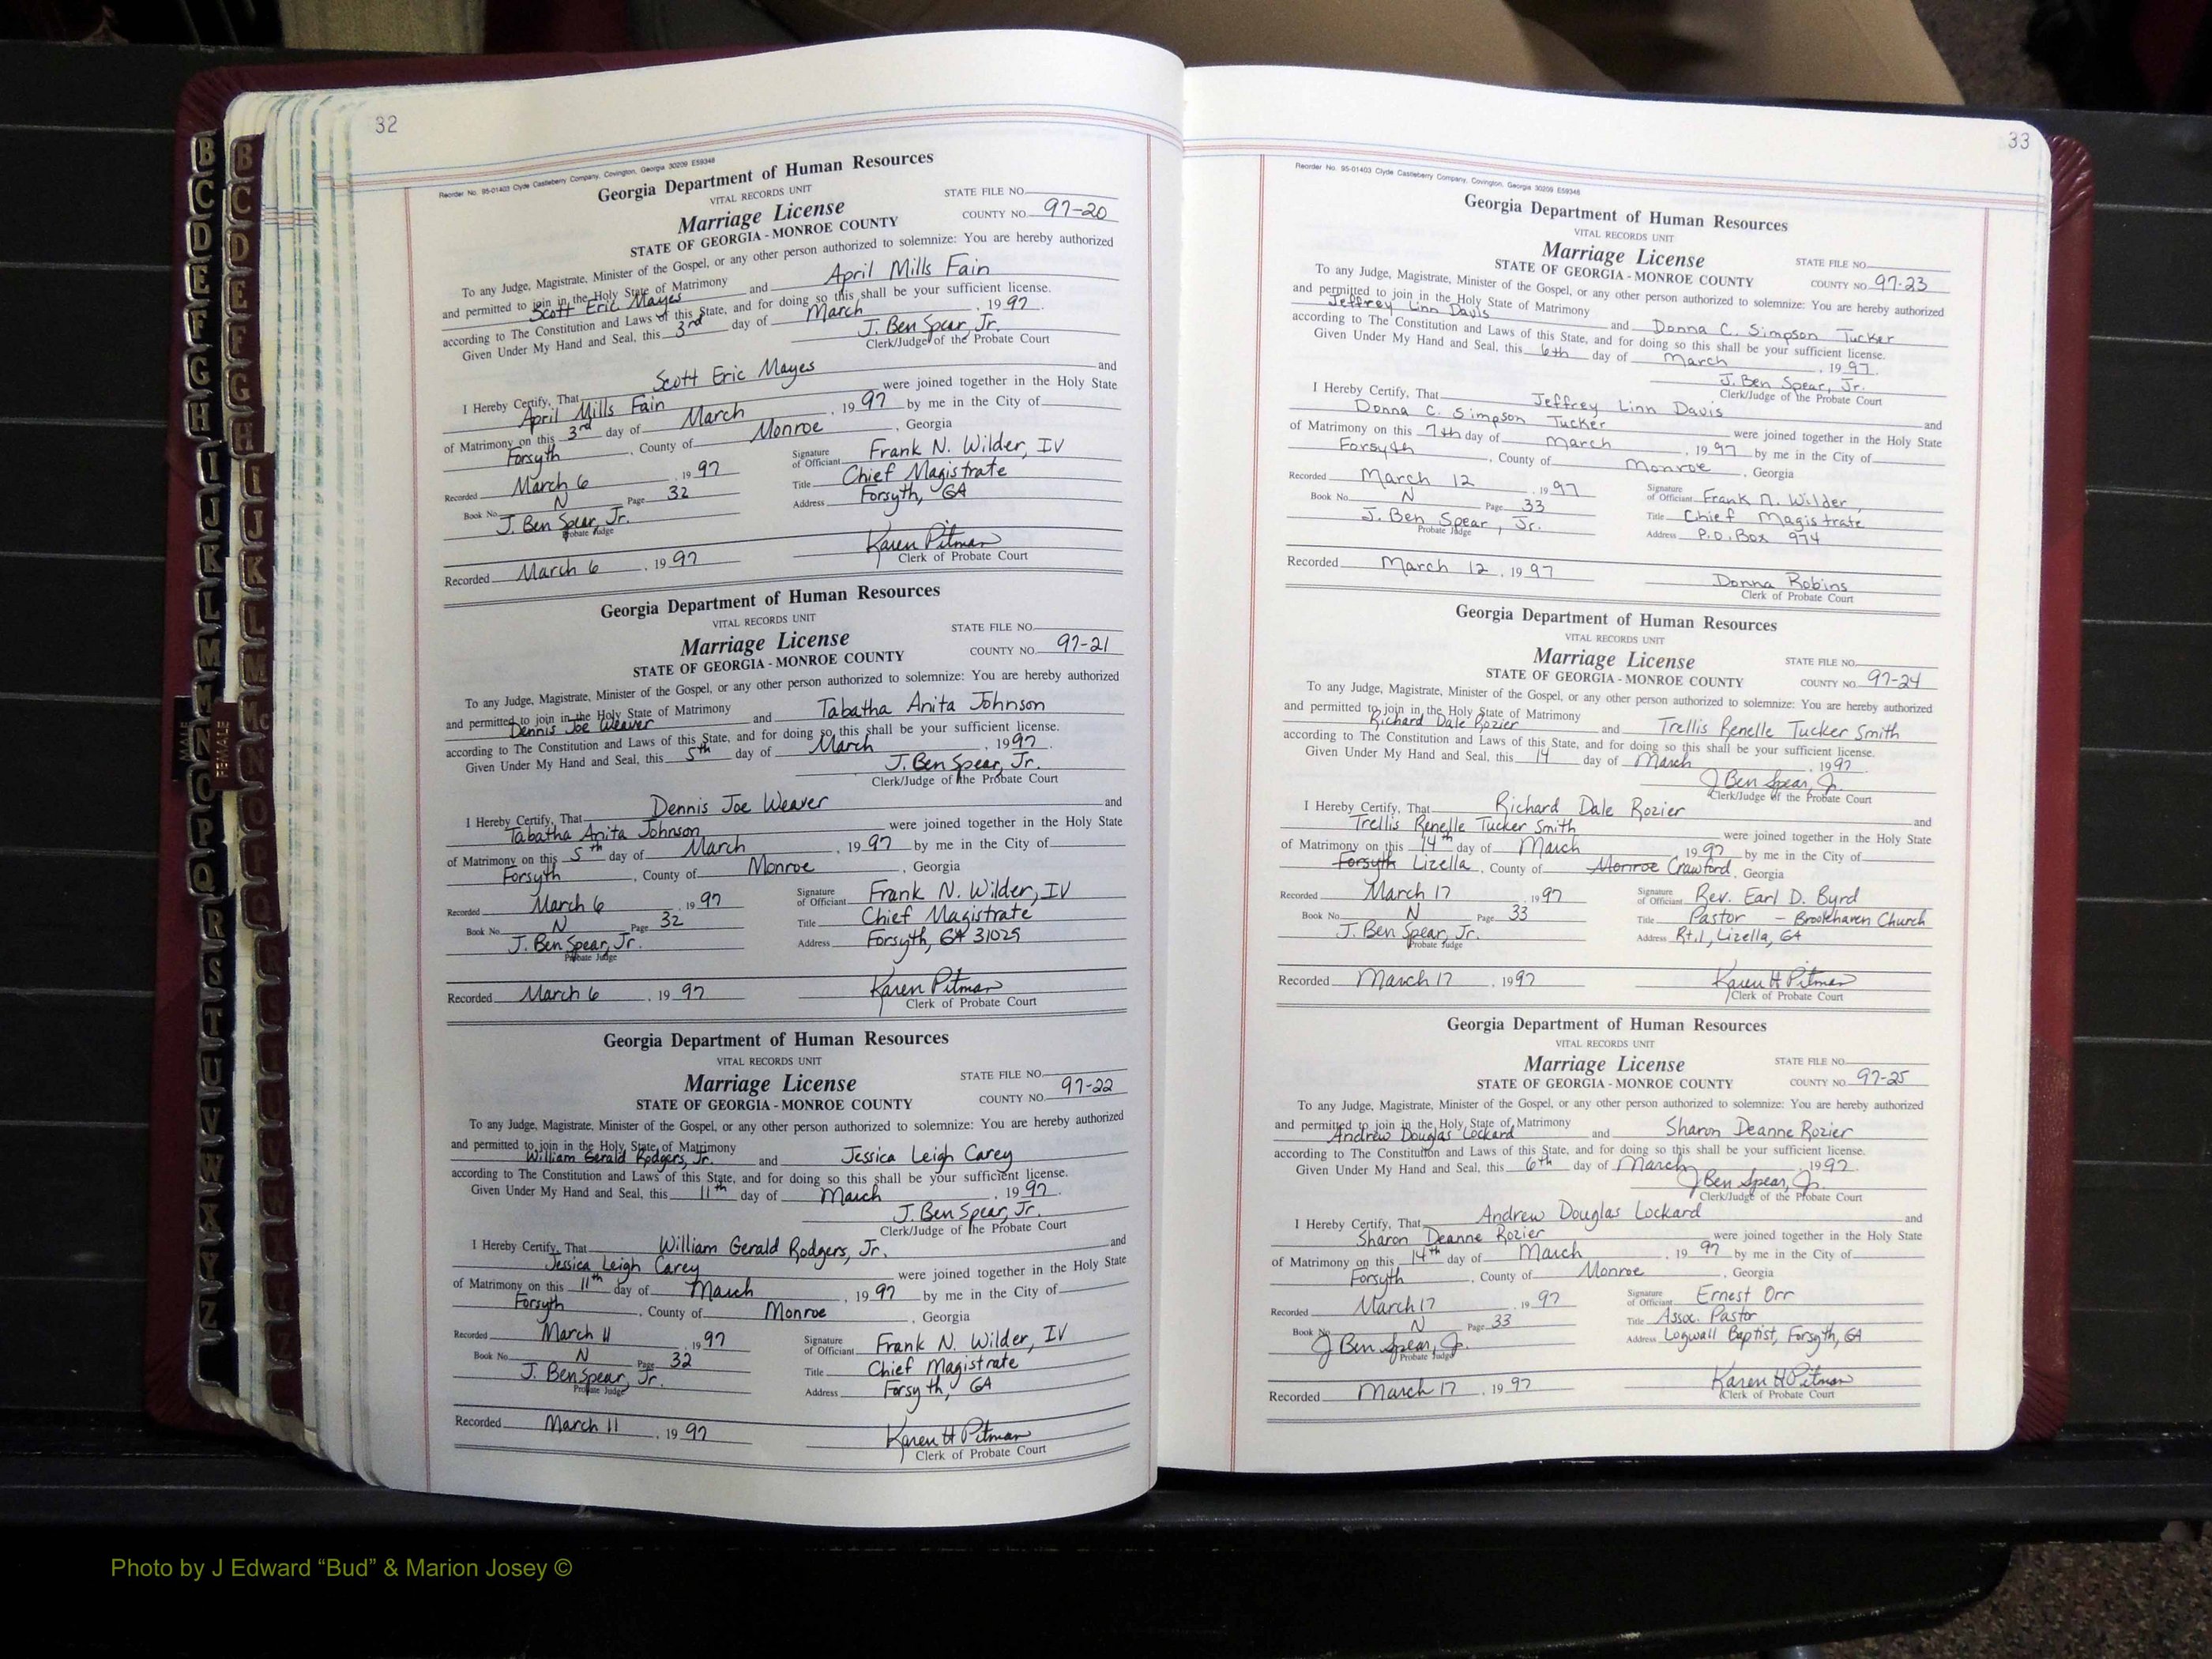 32
Reorder No. 95-01403 Clyde Castleberry Company, Covington, Georgia 30209 E59348
Georgia Department of Human Resources
VITAL RECORDS UNIT
STATE FILE NO.
Marriage License
COUNTY NO. 97-20
STATE OF GEORGIA - MONROE COUNTY
To any Judge, Magistrate, Minister of the Gospel, or any other person authorized to solemnize: You are hereby authorized
and permitted to join in the Holy State of Matrimony
Scott Eric Mayes and April Mills Fain
according to The Constitution and Laws of this State, and for doing so this shall be your sufficient license.
Given Under My Hand and Seal, this 3rd day of March, 1997.
J. Ben Spear, Jr.
Clerk/Judge of the Probate Court
I Hereby Certify, That Scott Eric Mayes and
April Mills Fain were joined together in the Holy State
of Matrimony on this 3rd day of March, 1997 by me in the City of
Forsyth, County of Monroe, Georgia
Recorded March 6, 1997
Signature of Officiant Frank N. Wilder, IV
Book No. N Page 32
Title Chief Magistrate
J. Ben Spear, Jr.
Address Forsyth, GA
Probate Judge
Recorded March 6, 1997
Karen Pitman
Clerk of Probate Court
Georgia Department of Human Resources
VITAL RECORDS UNIT
STATE FILE NO.
Marriage License
COUNTY NO. 97-21
STATE OF GEORGIA - MONROE COUNTY
To any Judge, Magistrate, Minister of the Gospel, or any other person authorized to solemnize: You are hereby authorized
and permitted to join in the Holy State of Matrimony
Dennis Joe Weaver and Tabatha Anita Johnson
according to The Constitution and Laws of this State, and for doing so this shall be your sufficient license.
Given Under My Hand and Seal, this 5th day of March, 1997.
J. Ben Spear, Jr.
Clerk/Judge of the Probate Court
I Hereby Certify, That Dennis Joe Weaver and
Tabatha Anita Johnson were joined together in the Holy State
of Matrimony on this 5th day of March, 1997 by me in the City of
Forsyth, County of Monroe, Georgia
Recorded March 6, 1997
Signature of Officiant Frank N. Wilder, IV
Book No. N Page 32
Title Chief Magistrate
J. Ben Spear, Jr.
Address Forsyth, GA 31029
Probate Judge
Recorded March 6, 1997
Karen Pitman
Clerk of Probate Court
Georgia Department of Human Resources
VITAL RECORDS UNIT
STATE FILE NO.
Marriage License
COUNTY NO. 97-22
STATE OF GEORGIA - MONROE COUNTY
To any Judge, Magistrate, Minister of the Gospel, or any other person authorized to solemnize: You are hereby authorized
and permitted to join in the Holy State of Matrimony
William Gerald Rodgers, Jr. and Jessica Leigh Carey
according to The Constitution and Laws of this State, and for doing so this shall be your sufficient license.
Given Under My Hand and Seal, this 11th day of March, 1997.
J. Ben Spear, Jr.
Clerk/Judge of the Probate Court
I Hereby Certify, That William Gerald Rodgers, Jr. and
Jessica Leigh Carey were joined together in the Holy State
of Matrimony on this 11th day of March, 1997 by me in the City of
Forsyth, County of Monroe, Georgia
Recorded March 11, 1997
Signature of Officiant Frank N. Wilder, IV
Book No. N Page 32
Title Chief Magistrate
J. Ben Spear, Jr.
Address Forsyth, GA
Probate Judge
Recorded March 11, 1997
Karen H Pitman
Clerk of Probate Court
33
Reorder No. 95-01403 Clyde Castleberry Company, Covington, Georgia 30209 E59348
Georgia Department of Human Resources
VITAL RECORDS UNIT
Marriage License
STATE FILE NO.
STATE OF GEORGIA - MONROE COUNTY
COUNTY NO. 97-23
To any Judge, Magistrate, Minister of the Gospel, or any other person authorized to solemnize: You are hereby authorized
and permitted to join in the Holy State of Matrimony
Jeffrey Linn Davis and Donna C. Simpson Tucker
according to The Constitution and Laws of this State, and for doing so this shall be your sufficient license.
Given Under My Hand and Seal, this 6th day of March, 1997.
J. Ben Spear, Jr.
Clerk/Judge of the Probate Court
I Hereby Certify, That Jeffrey Linn Davis and
Donna C. Simpson Tucker were joined together in the Holy State
of Matrimony on this 7th day of March, 1997 by me in the City of
Forsyth, County of Monroe, Georgia
Recorded March 12, 1997
Signature of Officiant Frank N. Wilder,
Book No. N Page 33
Title Chief Magistrate
J. Ben Spear, Jr.
Address P.O. Box 974
Probate Judge
Recorded March 12, 1997
Donna Robins
Clerk of Probate Court
Georgia Department of Human Resources
VITAL RECORDS UNIT
Marriage License
STATE FILE NO.
STATE OF GEORGIA - MONROE COUNTY
COUNTY NO. 97-24
To any Judge, Magistrate, Minister of the Gospel, or any other person authorized to solemnize: You are hereby authorized
and permitted to join in the Holy State of Matrimony
Richard Dale Rozier and Trellis Renelle Tucker Smith
according to The Constitution and Laws of this State, and for doing so this shall be your sufficient license.
Given Under My Hand and Seal, this 14 day of March, 1997.
J Ben Spear, Jr.
Clerk/Judge of the Probate Court
I Hereby Certify, That Richard Dale Rozier and
Trellis Renelle Tucker Smith were joined together in the Holy State
of Matrimony on this 14th day of March, 1997 by me in the City of
Forsyth Lizella, County of Monroe Crawford, Georgia
Recorded March 17, 1997
Signature of Officiant Rev. Earl D. Byrd
Book No. N Page 33
Title Pastor - Brookhaven Church
J. Ben Spear, Jr.
Address Rt. 1, Lizella, GA
Probate Judge
Recorded March 17, 1997
Karen H Pitman
Clerk of Probate Court
Georgia Department of Human Resources
VITAL RECORDS UNIT
Marriage License
STATE FILE NO.
STATE OF GEORGIA - MONROE COUNTY
COUNTY NO. 97-25
To any Judge, Magistrate, Minister of the Gospel, or any other person authorized to solemnize: You are hereby authorized
and permitted to join in the Holy State of Matrimony
Andrew Douglas Lockard and Sharon Deanne Rozier
according to The Constitution and Laws of this State, and for doing so this shall be your sufficient license.
Given Under My Hand and Seal, this 6th day of March, 1997.
J Ben Spear, Jr.
Clerk/Judge of the Probate Court
I Hereby Certify, That Andrew Douglas Lockard and
Sharon Deanne Rozier were joined together in the Holy State
of Matrimony on this 14th day of March, 1997 by me in the City of
Forsyth, County of Monroe, Georgia
Recorded March 17, 1997
Signature of Officiant Ernest Orr
Book No. N Page 33
Title Assoc. Pastor
J Ben Spear, Jr.
Address Logwall Baptist, Forsyth, GA
Probate Judge
Recorded March 17, 1997
Karen H Pitman
Clerk of Probate Court
B
C
D
E
F
G
H
I
J
K
L
M
N
O
P
Q
R
S
T
U
V
W
X
Y
Z
MALE
FEMALE
Photo by J Edward “Bud” & Marion Josey ©